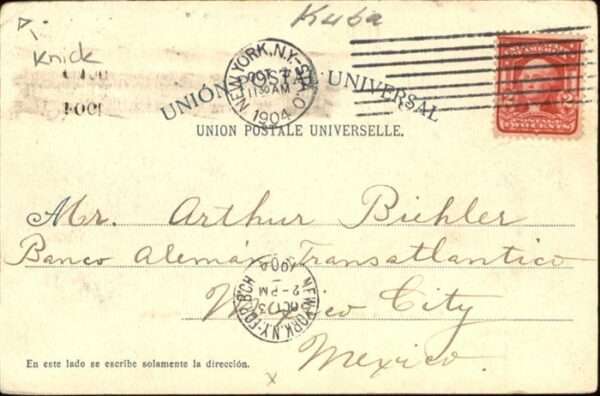 Kuba
Knick
NEW YORK, N.Y.
11 30 AM
1904
UNIÓN POSTAL UNIVERSAL
UNION POSTALE UNIVERSELLE.
TWO CENTS
Mr. Arthur Biehler
Banco Alemán Transatlantico
Mexico City
Mexico.
NEW YORK, N.Y.
OCT 3
2-PM
1904
En este lado se escribe solamente la dirección.
x